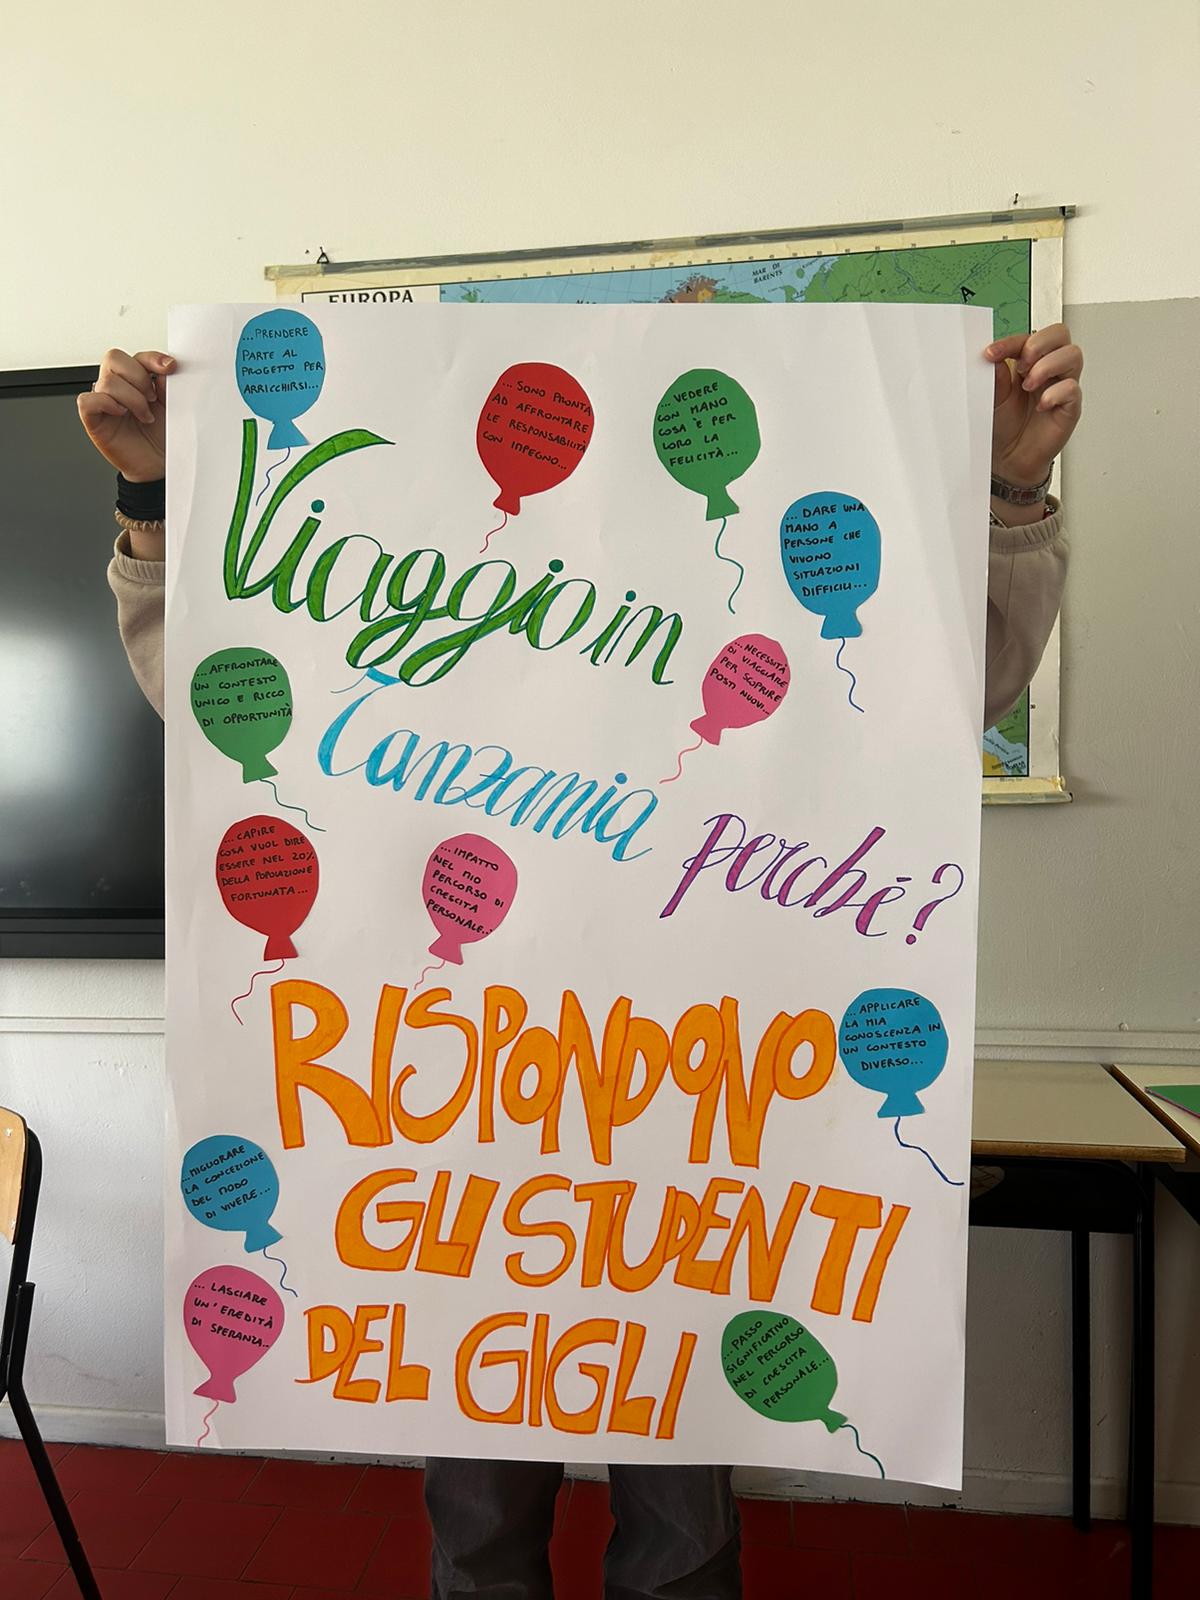 EUROPA
MAR DI
BARENTS
A
...PRENDERE
PARTE AL
PROGETTO PER
ARRICCHIRSI...
... SONO PRONTA
AD AFFRONTARE
LE RESPONSABILITÀ
CON IMPEGNO...
...VEDERE
CON MANO
COSA È PER
LORO LA
FELICITÀ...
...DARE UNA
MANO A
PERSONE CHE
VIVONO
SITUAZIONI
DIFFICILI...
Viaggio in
...AFFRONTARE
UN CONTESTO
UNICO E RICCO
DI OPPORTUNITÀ
...NECESSITÀ
DI VIAGGIARE
PER SCOPRIRE
POSTI NUOVI...
Tanzania
perché?
...CAPIRE
COSA VUOL DIRE
ESSERE NEL 20%
DELLA POPOLAZIONE
FORTUNATA...
...IMPATTO
NEL MIO
PERCORSO DI
CRESCITA
PERSONALE...
RISPONDONO
...APPLICARE
LA MIA
CONOSCENZA IN
UN CONTESTO
DIVERSO...
...MIGLIORARE
LA CONCEZIONE
DEL MODO
DI VIVERE...
GLI STUDENTI
... LASCIARE
UN'EREDITÀ
DI SPERANZA...
DEL GIGLI
...PASSO
SIGNIFICATIVO
NEL PERCORSO
DI CRESCITA
PERSONALE...